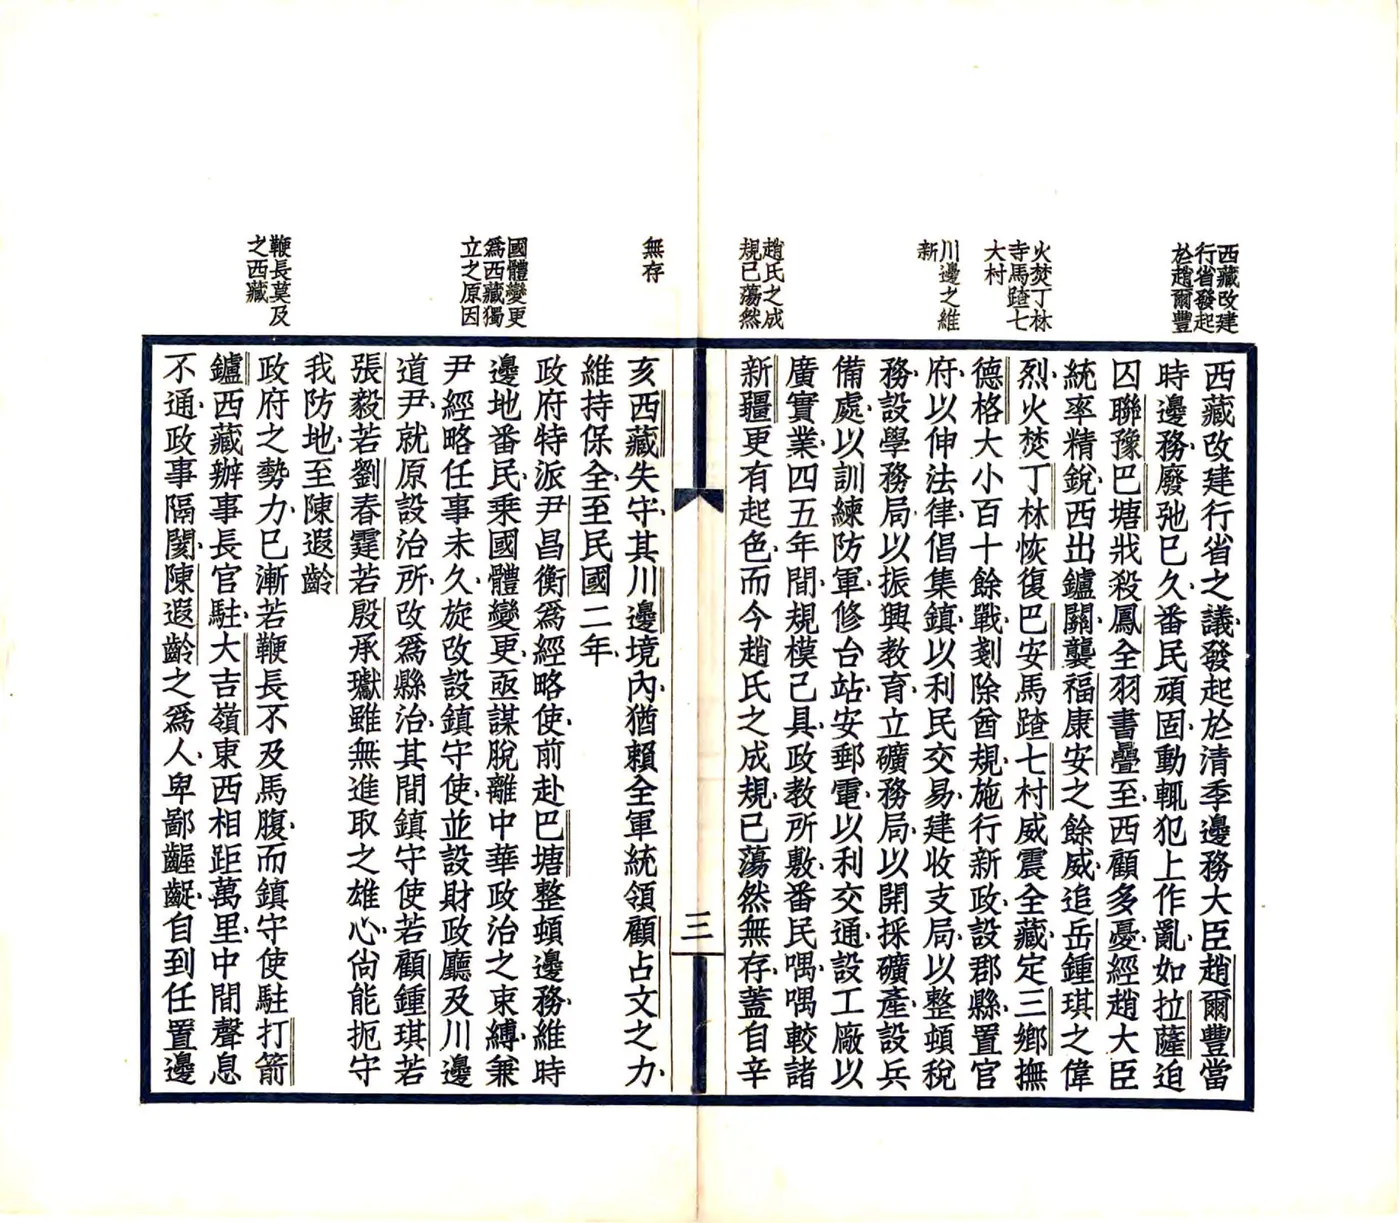 西藏改建
行省發起
於趙爾豐
火焚丁林
寺馬蹅七
大村
川邊之維
新
趙氏之成
規已蕩然
西藏改建行省之議發起於清季邊務大臣趙爾豐當
時邊務廢弛已久番民頑固動輒犯上作亂如拉薩迫
囚聯豫巴塘戕殺鳳全羽書疊至西顧多憂經趙大臣
統率精銳西出鑪關襲福康安之餘威追岳鍾琪之偉
烈火焚丁林恢復巴安馬蹅七村威震全藏定三鄉撫
德格大小百十餘戰剗除酋規施行新政設郡縣置官
府以伸法律倡集鎮以利民交易建收支局以整頓稅
務設學務局以振興教育立礦務局以開採礦產設兵
備處以訓練防軍修台站安郵電以利交通設工廠以
廣實業四五年間規模已具政教所敷番民喁喁較諸
新疆更有起色而今趙氏之成規已蕩然無存蓋自辛
三
無存
國體變更
爲西藏獨
立之原因
鞭長莫及
之西藏
亥西藏失守其川邊境內猶賴全軍統領顧占文之力
維持保全至民國二年
政府特派尹昌衡爲經略使前赴巴塘整頓邊務維時
邊地番民乘國體變更亟謀脫離中華政治之束縛兼
尹經略任事未久旋改設鎮守使並設財政廳及川邊
道尹就原設治所改爲縣治其間鎮守使若顧鍾琪若
張毅若劉春霆若殷承瓛雖無進取之雄心尙能扼守
我防地至陳遐齡
政府之勢力已漸若鞭長不及馬腹而鎮守使駐打箭
鑪西藏辦事長官駐大吉嶺東西相距萬里中間聲息
不通政事隔閡陳遐齡之爲人卑鄙齷齪自到任置邊